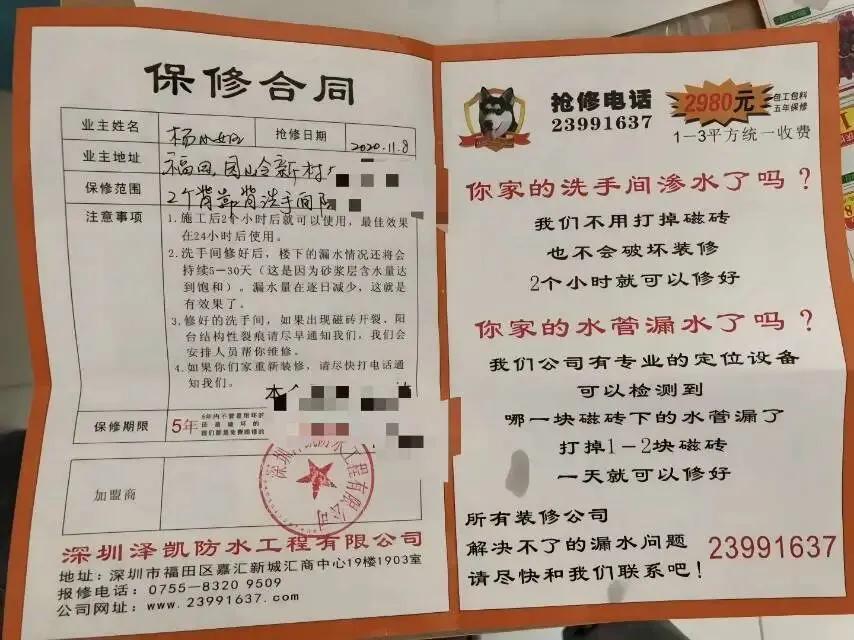 保修合同
业主姓名
抢修日期
2020.11.8
业主地址
福田
新村
保修范围
2个
洗手间
注意事项
1.施工后2个小时后就可以使用，最佳效果
在24小时后使用。
2.洗手间修好后，楼下的漏水情况还将会
持续5—30天（这是因为砂浆层含水量达
到饱和）。漏水量在逐日减少，这就是
有效果了。
3.修好的洗手间，如果出现磁砖开裂、阳
台结构性裂痕请尽早通知我们，我们会
安排人员帮你维修。
4.如果你们家重新装修，请尽快打电话通
知我们。
保修期限
5年
加盟商
深圳泽凯防水工程有限公司
地址：深圳市福田区嘉汇新城汇商中心19楼1903室
报修电话：0755—8320 9509
公司网址：www.23991637.com
抢修电话
23991637
2980元
包工包料
五年保修
1—3平方统一收费
你家的洗手间渗水了吗？
我们不用打掉磁砖
也不会破坏装修
2个小时就可以修好
你家的水管漏水了吗？
我们公司有专业的定位设备
可以检测到
哪一块磁砖下的水管漏了
打掉1－2块磁砖
一天就可以修好
所有装修公司
解决不了的漏水问题
请尽快和我们联系吧！
23991637